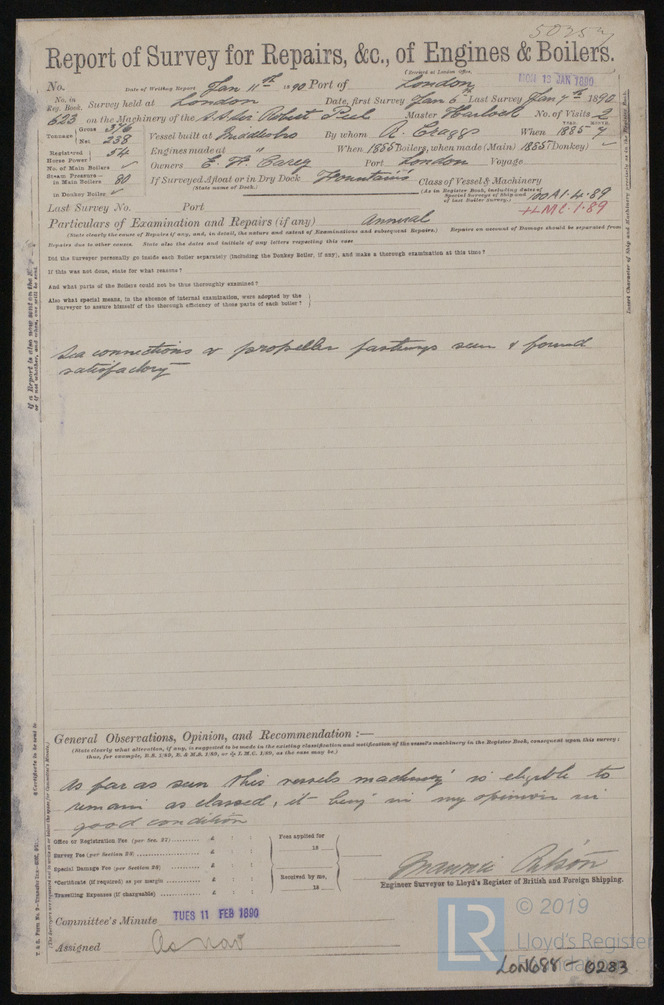 Report of Survey for Repairs, &c., of Engines & Boilers.
(Received at London Office,
No. Date of Writing Report Jan 11th 1890 Port of London MON 13 JAN 1890
No. in Reg. Book. Survey held at London Date, first Survey Jan 6th Last Survey Jan 7th 1890
623 on the Machinery of the S.S. Sir Robert Peel Master Harlock No. of Visits 2
Tonnage Gross 376 Net 238 Vessel built at Middlesbro By whom R. Craggs When 1885-7
YEAR. MONTH.
Registered Horse Power 54 Engines made at " When 1885 Boilers, when made (Main) 1885 (Donkey) ✓
No. of Main Boilers ✓ Owners Port London Voyage
Steam Pressure— in Main Boilers 80 If Surveyed Afloat or in Dry Dock Fountain's Class of Vessel & Machinery
(State name of Dock.) (As in Register Book, including dates of Special Surveys of Ship and of last Boiler survey.) 100A1.4.89
in Donkey Boiler ✓ LMC.1.89
Last Survey No. Port
Particulars of Examination and Repairs (if any) Annual
(State clearly the cause of Repairs if any, and, in detail, the nature and extent of Examinations and subsequent Repairs.) Repairs on account of Damage should be separated from
Repairs due to other causes. State also the dates and initials of any letters respecting this case
Did the Surveyor personally go inside each Boiler separately (including the Donkey Boiler, if any), and make a thorough examination at this time?
If this was not done, state for what reasons?
And what parts of the Boilers could not be thus thoroughly examined?
Also what special means, in the absence of internal examination, were adopted by the
Surveyor to assure himself of the thorough efficiency of those parts of each boiler?
Sea connections & propeller fastenings seen & found
satisfactory
General Observations, Opinion, and Recommendation :—
(State clearly what alteration, if any, is suggested to be made in the existing classification and notification of the vessel's machinery in the Register Book, consequent upon this survey:
thus, for example, B.S. 1/80, B. & M.S. 1/80, or L.M.C. 1/80, as the case may be.)
As far as seen this vessels machinery is eligible to
remain as classed, it being in my opinion in
good condition
Office or Registration Fee (per Sec. 27) £ : : Fees applied for
Survey Fee (per Section 28) £ : : 18
Special Damage Fee (per Section 28) £ : :
*Certificate (if required) as per margin £ : : Received by me,
Travelling Expenses (if chargeable) £ : : 18
Engineer Surveyor to Lloyd's Register of British and Foreign Shipping.
Committee's Minute TUES 11 FEB 1890
Assigned As now
© 2019
LR
Lloyd's Register
Foundation
LON688-0283